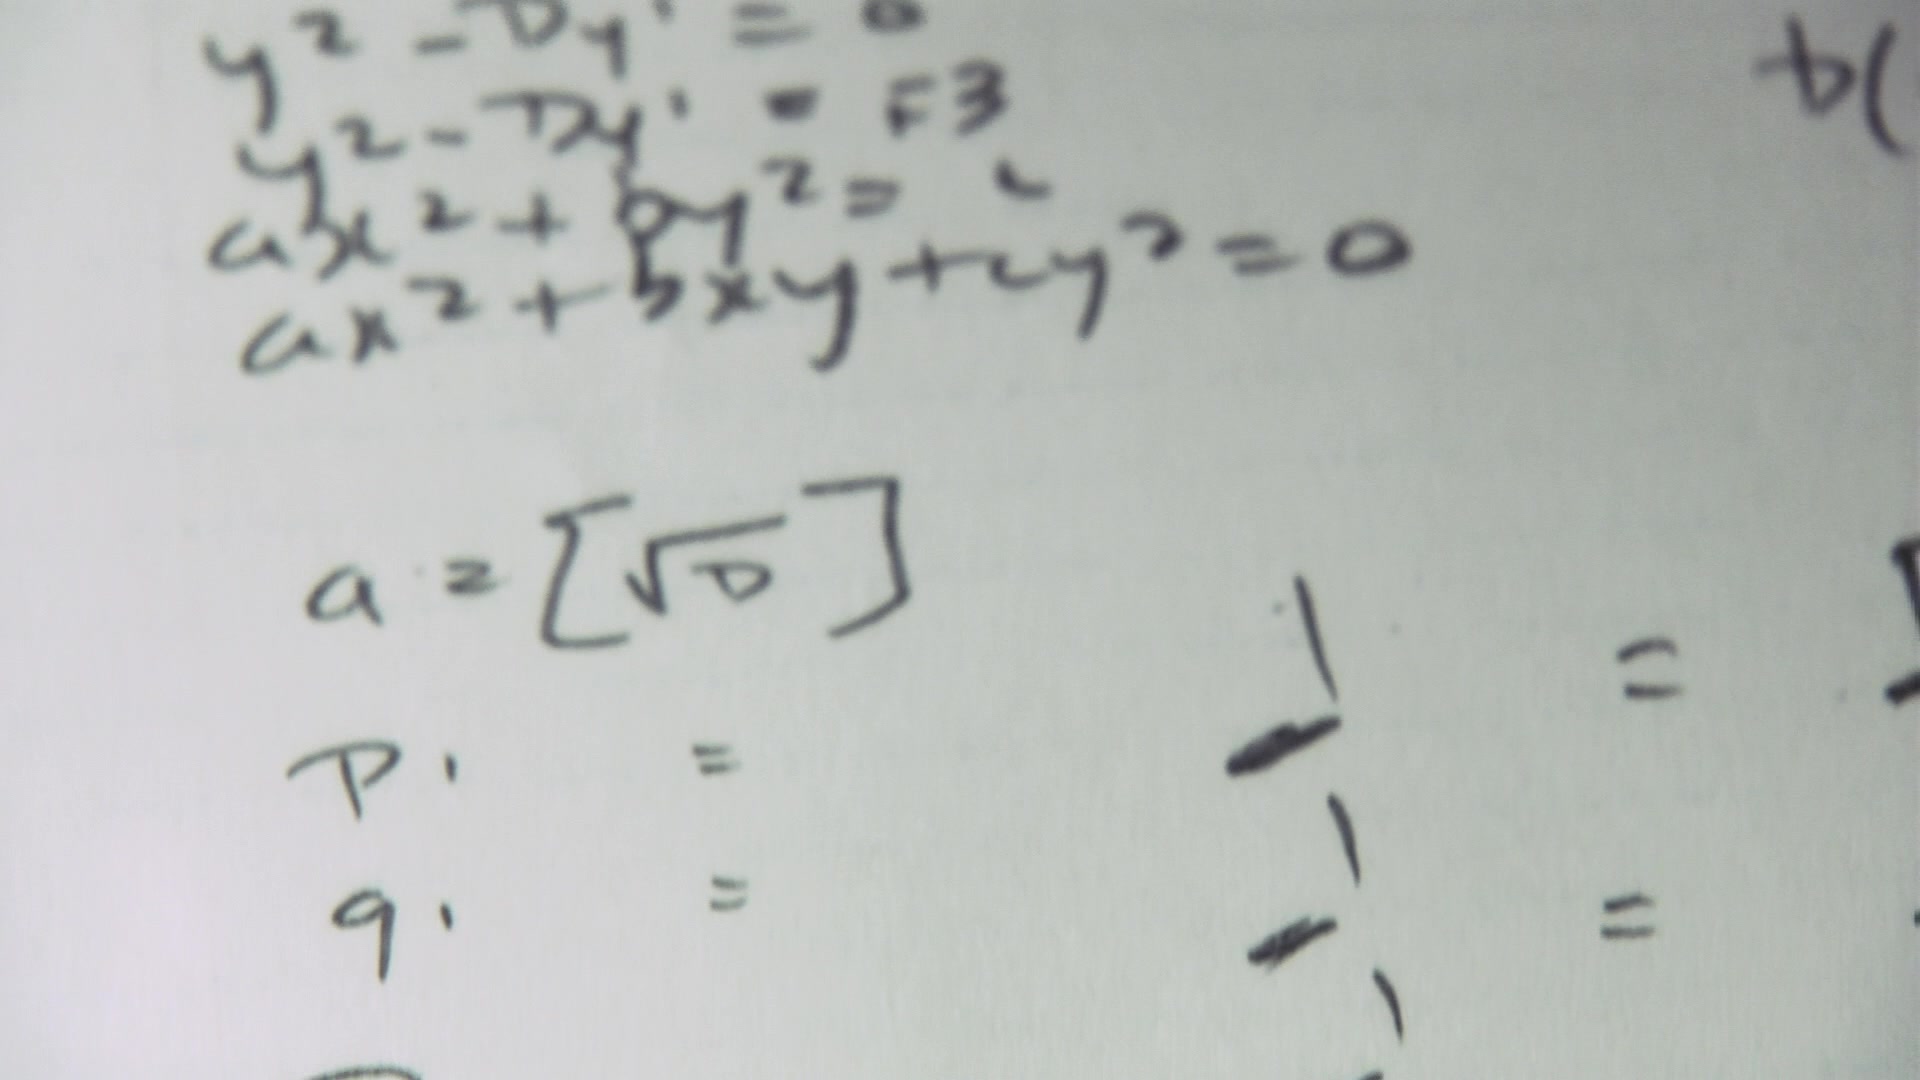 y² - Dy' = 0
y² - Dy' = F3
ax² + by² =
ax² + bxy + cy² = 0
b(
a = [√D]
P1 =
q1 =